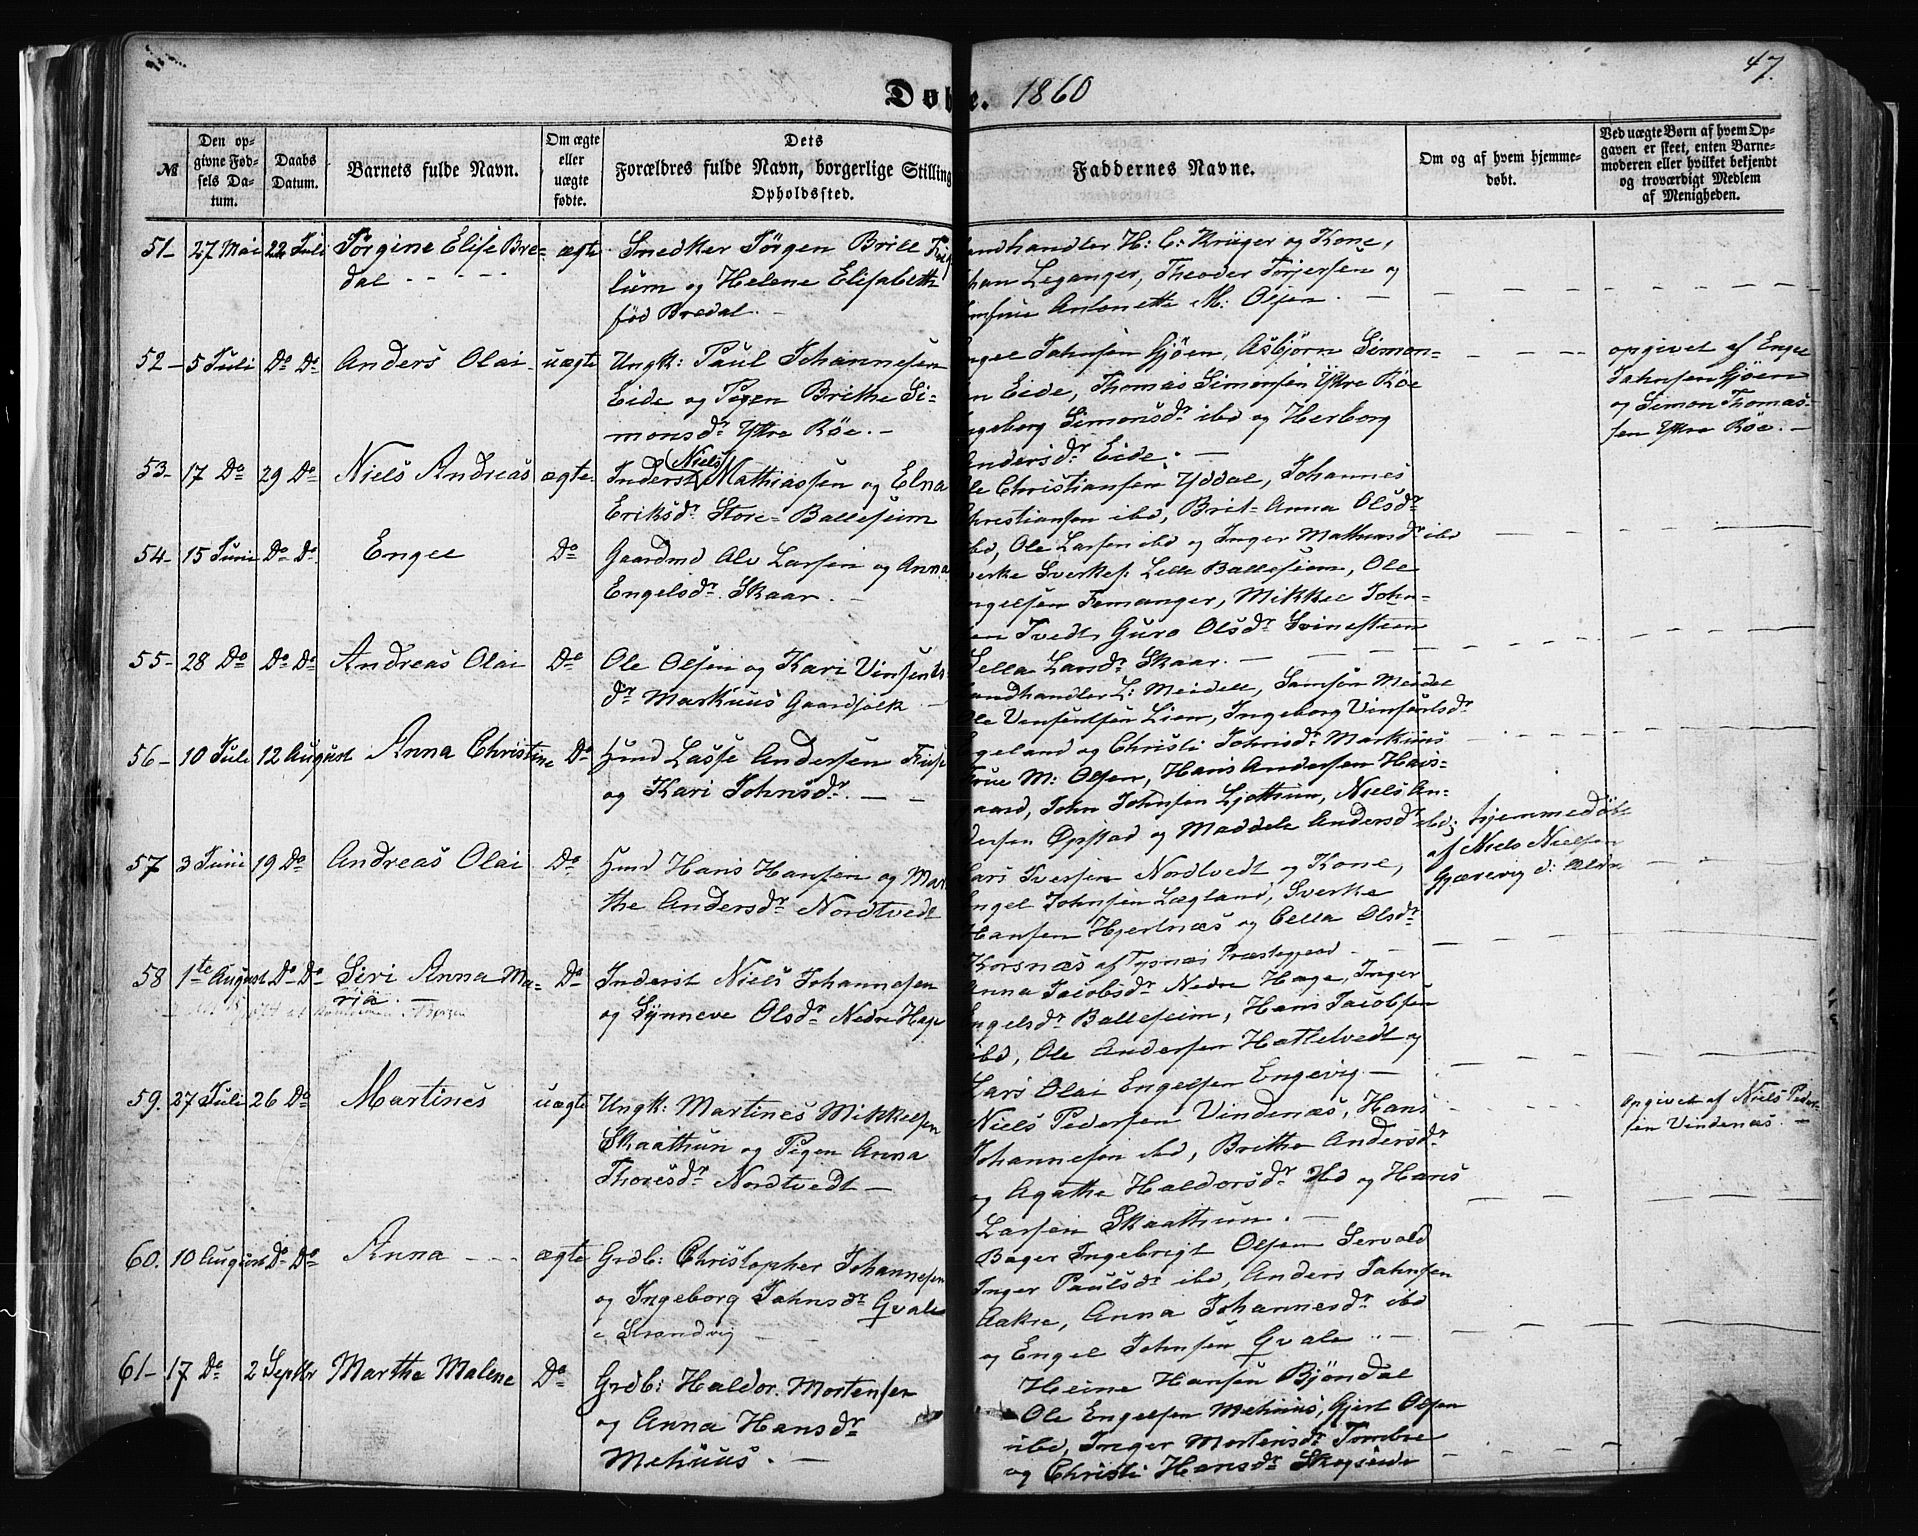 47.
Døbte. 1860
№
Den opgivne Fødsels Datum.
Daabs Datum.
Barnets fulde Navn.
Om ægte eller uægte fødte.
Dets Forældres fulde Navn, borgerlige Stilling Opholdssted.
Faddernes Navne.
Om og af hvem hjemmedøbt.
Ved uægte Børn af hvem Opgaven er skeet, enten Barnemoderen eller hvilket bekjendt og troværdigt Medlem af Menigheden.
51- 27 Mai 22 Juli Jørgine Elise Bre- ægte
dal
Snedker Jørgen Brill
lum og Helene Elisabeth
fød Bredal. -
andhandler H: C: Krüger og Kone,
han Leganger, Theodor Torjersen og
Antonette M: Olsen. -
52- 5 Juli Do Do Anders Olai uægte
Ungk: Paul Johannesen
Eide og Pigen Brithe Si-
monsdr. Ytre Røe. -
ngel Jahnsen Gjøen, Asbjørn Simon-
n Eide, Thomas Simonsen Ytre Røe
ngeborg Simonsdr. ibd og Herborg
Andersdr. Eide. -
opgivet af Engel
Jahnsen Gjøen
og Simon Thomas-
sen Ytre Røe. -
53- 17 Do 29 Do Niels Andreas ægte
Inderst Niels Mathiassen og Elna
Eriksdr. Store-Balleseim
le Christiansen Yddal, Johannes
Christiansen ibd, Brit-Anna Olsdr.
ibd, Ole Larsen ibd og Inger Mathiasdr ibd
54- 15 Juni Do Do Engel Do
Gaardmd Ole Larsen og Anna
Engelsdr. Skaar. -
verke Sverkes: Lille Balleseim, Ole
ngelsen Femanger, Mikkel John-
sen Tvedt, Guro Olsdr. Svinesteen
Sella Larsdr. Skaar. -
55- 28 Do Do Do Andreas Olai Do
Ole Olsen og Kari Vinsents
dr. Markhuus Gaardfolk -
andhandler L: Meidell, Samson Meidel
Ole Vinsentsen Lien, Ingeborg Vinsentsdr.
geland og Christi Johnsdr. Markuus
56- 10 Juli 12 August Anna Christine Do
Husmd Lasse Andersen
og Kari Johnsdr. - -
Frue M: Olsen, Hans Andersen Hais-
aard, John Johnsen Ljothun, Niels An-
dersen Opstad og Maddele Andersdr. ibd;
hjemmedøbt
af Niels Nielsen
Gjærevig d: Ældr
57 3 Juni 19 Do Andreas Olai Do
Husmd Hans Hansen og Mar
the Andersdr. Nordtvedt
Lars Iversen Nordtvedt og Kone,
Engel Johnsen Lægland, Sverke
Hansen Hjertnæs og Cella Olsdr.
Korsnæs af Tysnæs Præstegjeld
58 1te August Do Do Siri Anna Ma- Do
ria. -
Inderst Niels Johannesen
og Synneve Olsdr. Nedre Hage
Anna Jacobsdr. Nedre Hage, Inger
Engelsdr. Balleseim, Hans Jacobsen
ibd, Ole Andersen Hattelvedt og
Lars Olai Engelsen Engevig -
59. 27 Juli 26 Do Martines uægte
Ungk: Martines Mikkelsen
Skaathun og Pigen Anna
Thoresdr. Nordtvedt -
Niels Pedersen Vindenæs, Hans
Johannesen ibd, Brithe Andersdr.
og Agathe Haldorsdr. ibd og Hans
Larsen Skaathun. -
opgivet af Niels Peder-
sen Vindenæs. -
60. 10 August Do Do Anna ægte
Grdb: Christopher Johannesen
og Ingeborg Jahnsdr. Qvale
i Strandvig -
Bager Ingebrigt Olsen Servold
Inger Paulsdr. ibd, Anders Jahnsen
Aakre, Anna Johannesdr. ibd
og Engel Johnsen Qvale. -
61- 17 Do 2 Septbr Marthe Malene Do
Grdb: Haldor Mortensen
og Anna Hansdr.
Mehuus. -
Heine Hansen Bjøndal
Ole Engelsen Mehuus, Gjert Olsen
ibd, Inger Mortensdr. Tombre
og Christi Hansdr. Skogseide